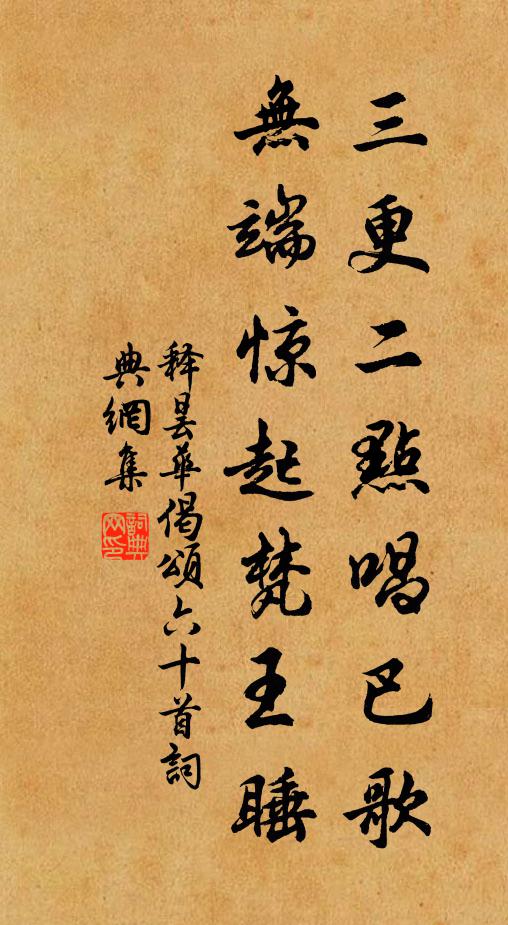 三更二點唱巴歌
無端惊起梵王睡
释曇華偈頌六十首詞
典網集
詞典網印